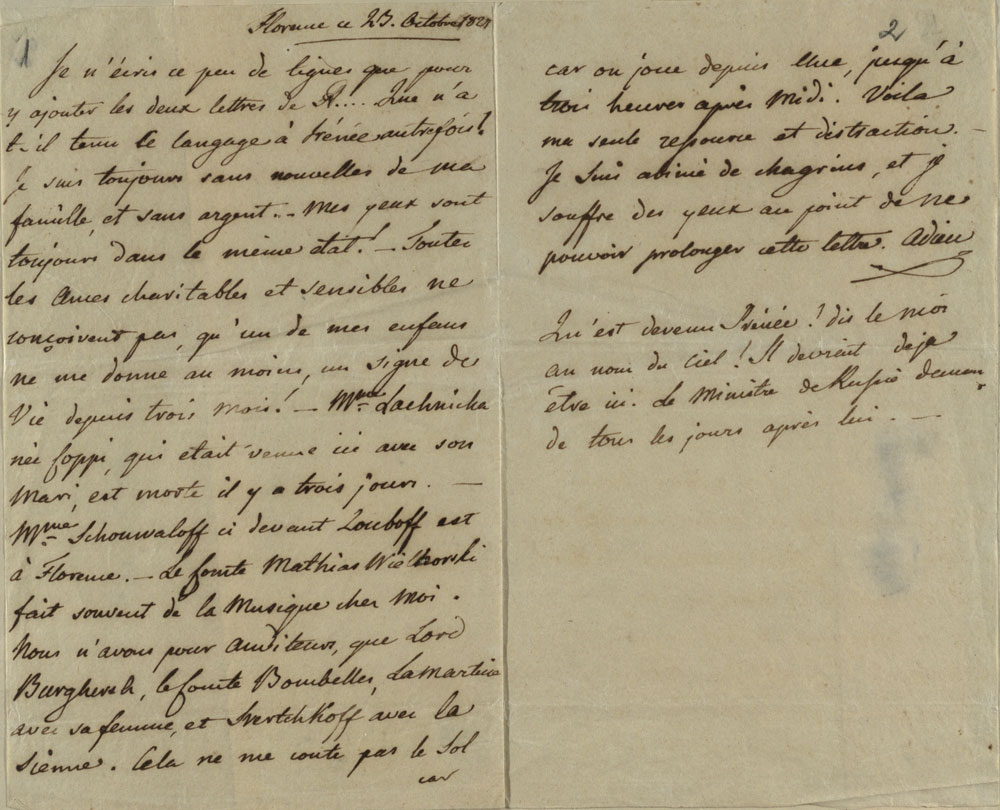 1
Florence ce 23. Octobre 182
Je n'écris ce peu de lignes que pour
y ajouter les deux lettres de A.... Que n'a
t-il tenu le langage à Irénée autrefois!
Je suis toujours sans nouvelles de ma
famille, et sans argent. - Mes yeux sont
toujours dans le même état! - Toutes
les Ames charitables et sensibles ne
conçoivent pas, qu'un de mes enfans
ne me donne au moins, un signe de
Vie depuis trois mois! - Mme Lachnicka
née Coppi, qui était venue ici avec son
Mari, est morte il y a trois jours. -
Mme Schouwaloff ci devant Zouboff est
à Florence. - Le Comte Mathias Wielhorski
fait souvent de la Musique chez Moi.
Nous n'avons pour Auditeurs, que Lord
Burghersh, le Comte Bombelles, Lamartine
avec sa femme, et Svertchkoff avec la
sienne. Cela ne me coute pas le Sol
car
2
car on joue depuis Une, jusqu'à
trois heures après Midi. Voila
ma seule ressource et distraction. -
Je Suis abimé de chagrins, et je
souffre des yeux au point de ne
pouvoir prolonger cette lettre. Adieu
Qu'est devenu Irénée! dis le moi
au nom du Ciel! Il devrait deja
être ici. Le Ministre de Russie deman
de tous les jours après lui. -